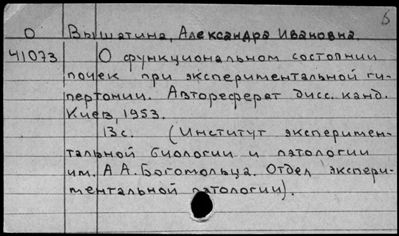 б
О Вышатина, Александра Ивановна.
41073 О функциональном состоянии
почек при экспериментальной ги-
пертонии. Автореферат дисс. канд.
Киев, 1953.
13с. (Институт эксперимен-
тальной биологии и патологии
им. А А. Богомольца. Отдел экспери-
ментальной патологии).